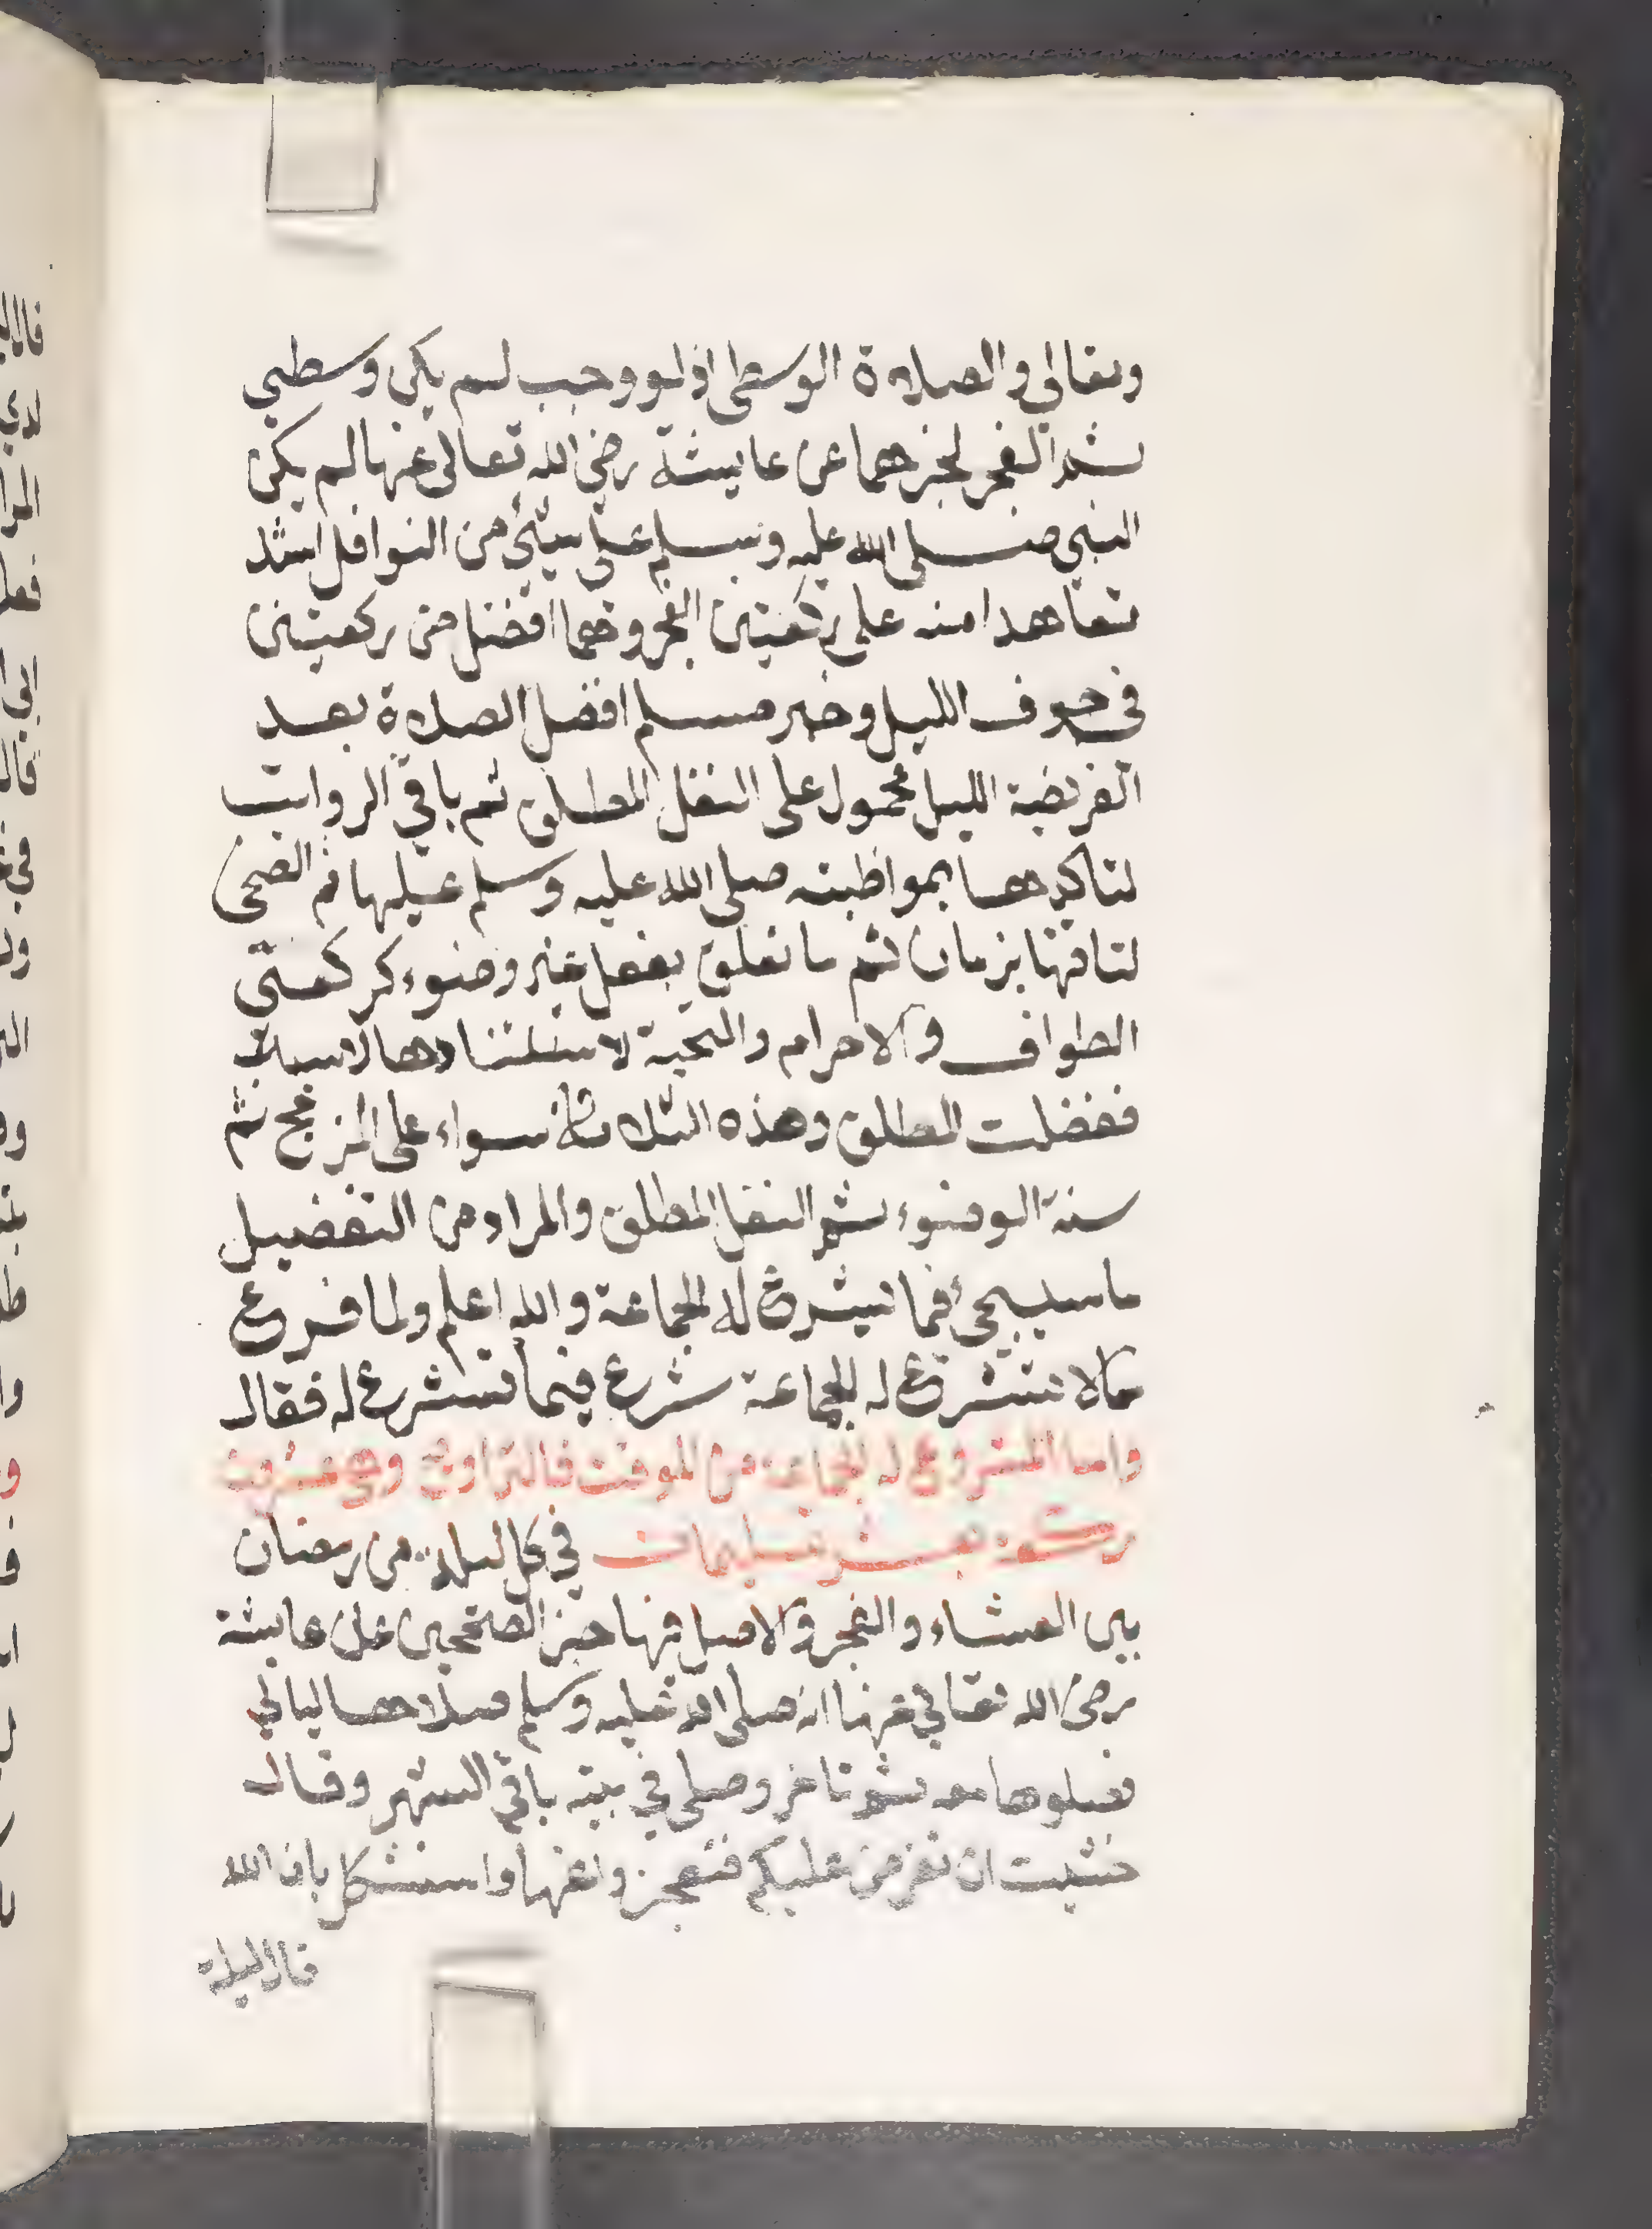 وتعالي والصلاة الوسطي اذ لو وجب لم يكن وسطي
ثم الفجر لخبرهما عن عايشة رضي الله تعالى عنها لم يكن
النبي صلى الله عليه وسلم علي شيئ من النوافل اشد
تعاهدا منه على ركعتين الفجر وهما افضل من ركعتين
في جوف الليل وخبر مسلم افضل الصلاة بعد
الفريضة الليل محمول على النفل المطلق ثم باقي الرواتب
لتاكدها بمواظبته صلى الله عليه وسلم عليها ثم الضحى
لتاقتها بزمان ثم ما تعلق بفعل غير وضوء كركعتي
الطواف والاحرام والتحية لاستنادها لاسباب
ففضلت المطلق وهذه الثلاثة سواء على المرجح ثم
سنة الوضوء ثم النفل المطلق والمراد من التفضيل
ما سيجئ فما تشرع له الجماعة والله اعلم ولما فرع
مما لا تشرع له الجماعة شرع فيما تشرع له فقال
واما المشروع له الجماعة من الموقت فالتراويح وهي عشرون
ركعة بعشر تسليمات في كل ليلة من رمضان
بين العشاء والفجر والاصل فيها خبر الصحيحين عن عايشة
رضي الله تعالي عنها انه صلى الله عليه وسلم صلاها ليالي
فصلوها معه ثم تاخر وصلى في بيته باقي الشهر وقال
خشيت ان تفرض عليكم فتعجزوا عنها واستشكل بان الله
قال ليلة